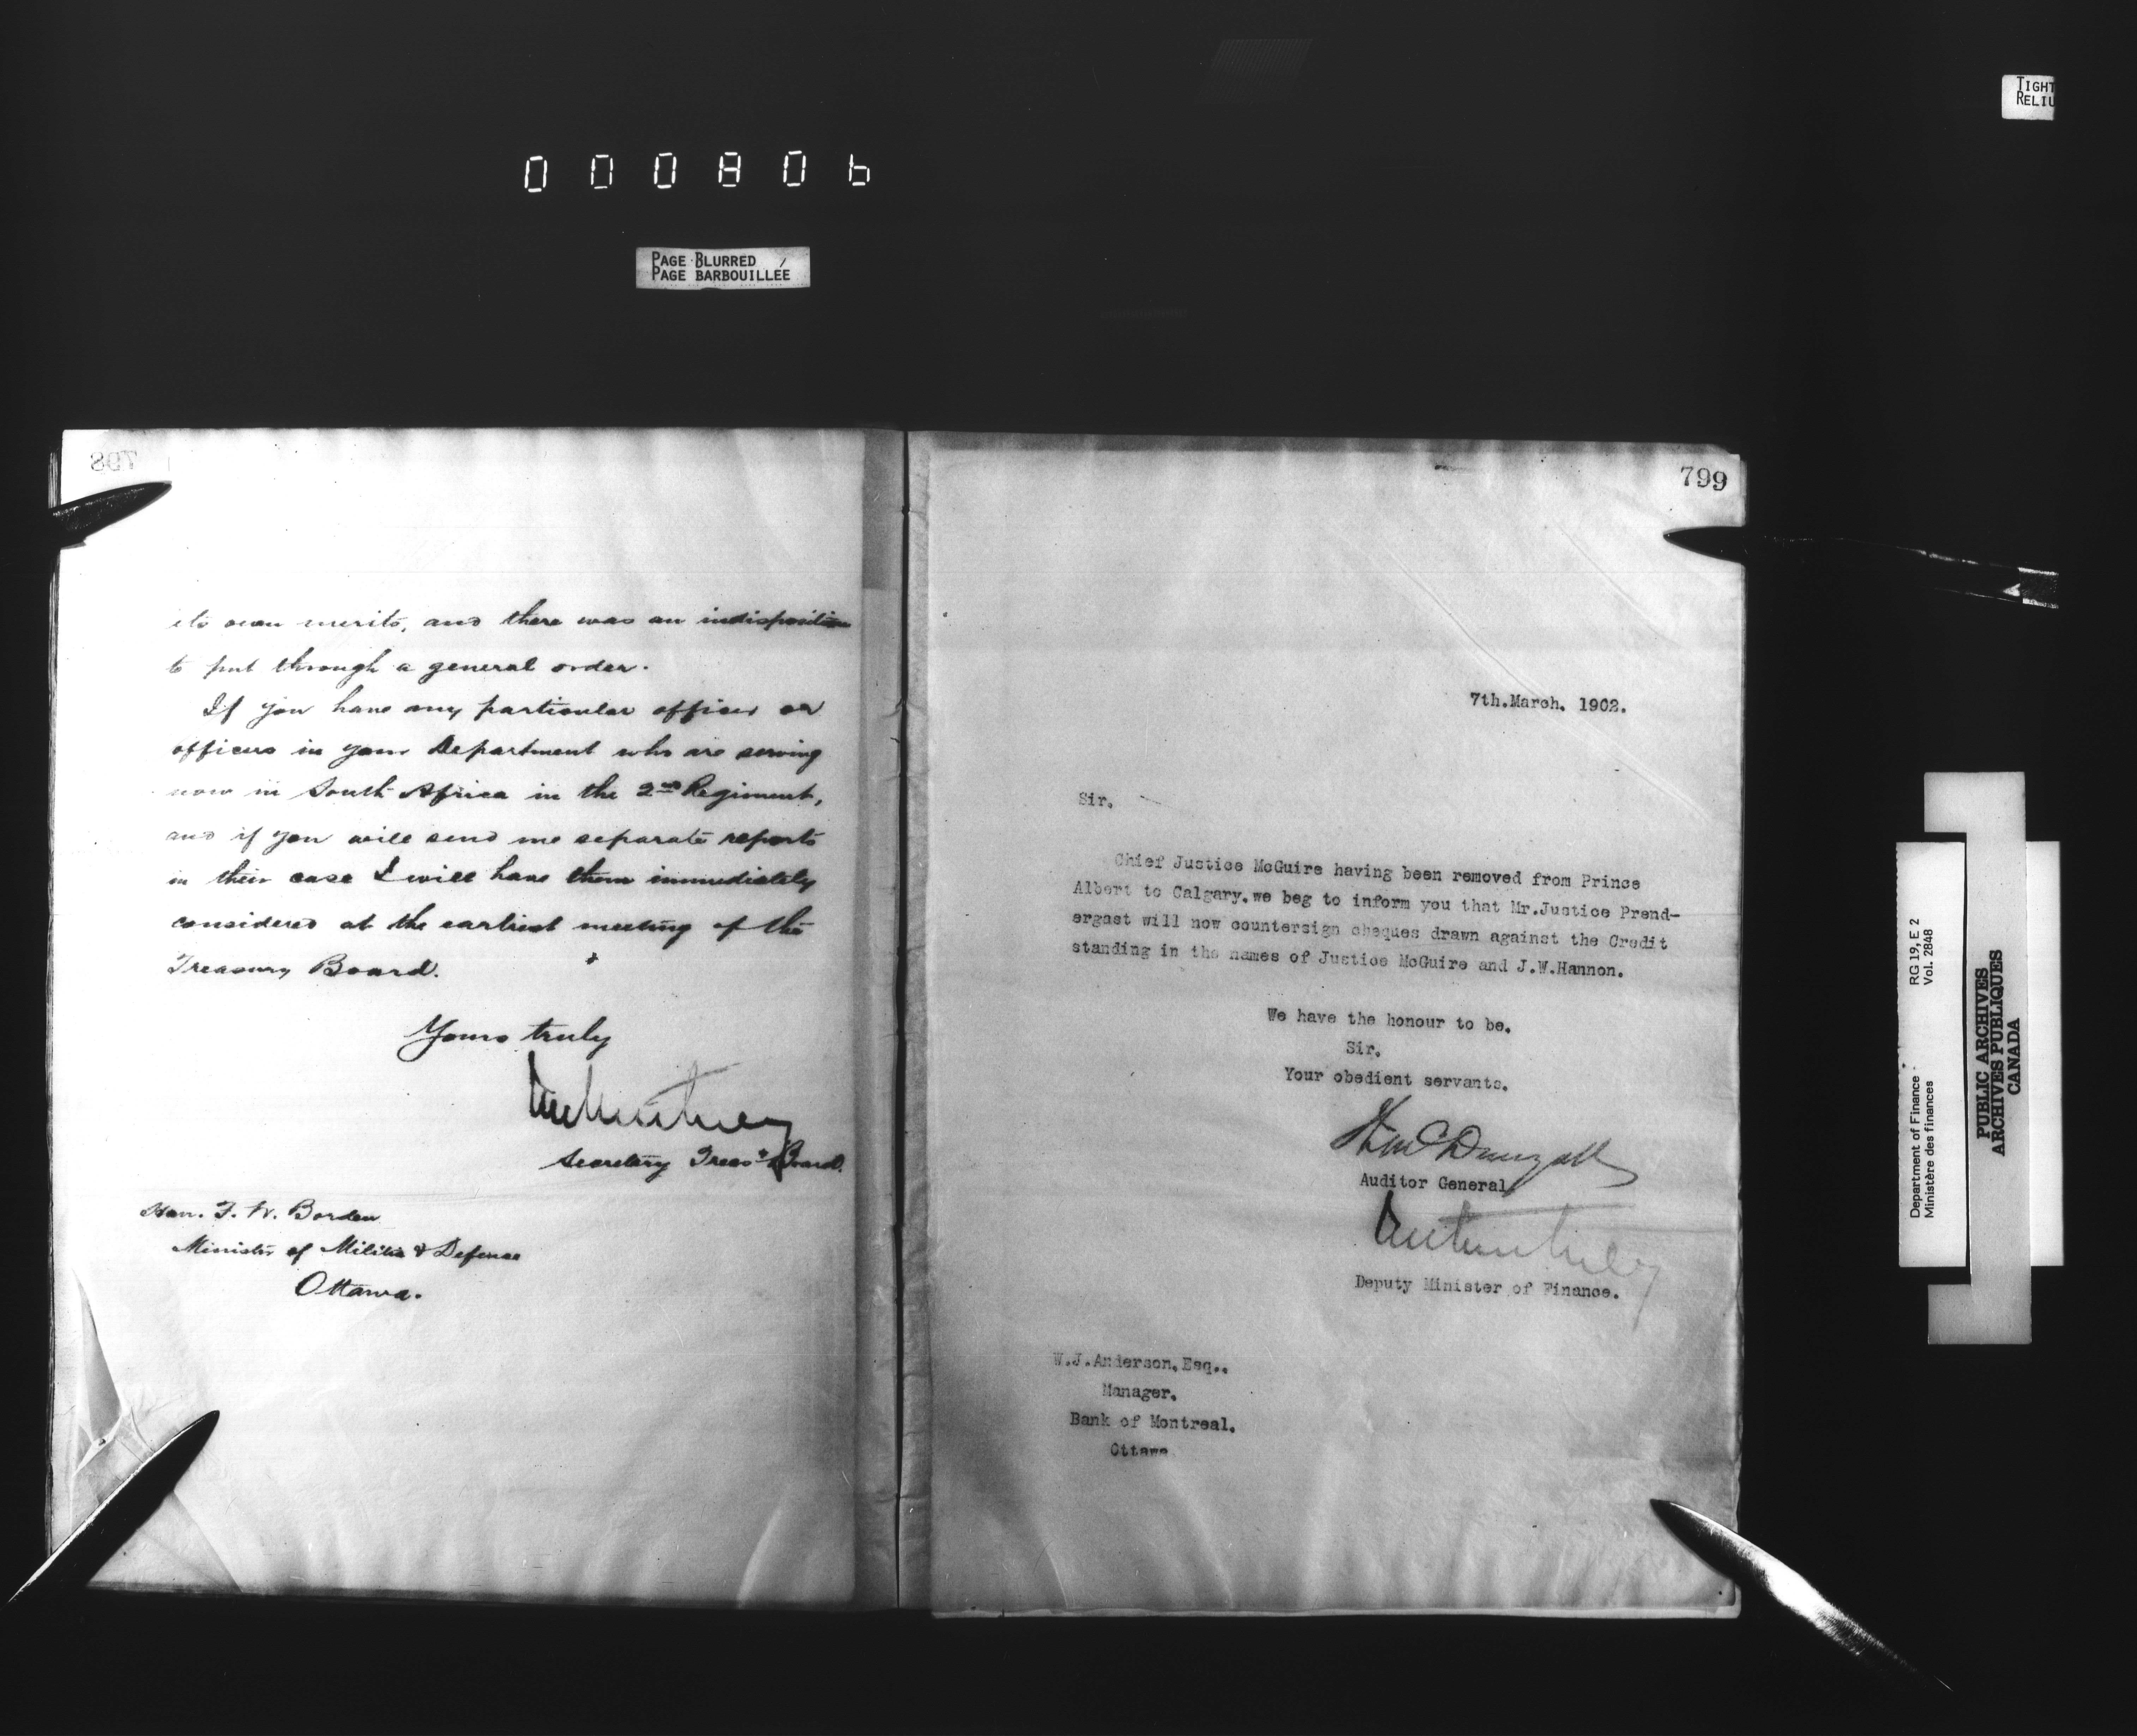 TIGHT
RELIU
000806
PAGE BLURRED
PAGE BARBOUILLÉE
798
its own merits, and there was an indisposition
to put through a general order.
If you have any particular officer or
officers in your Department who are serving
now in South Africa in the 2nd Regiment,
and if you will send me separate reports
in their case I will have them immediately
considered at the earliest meeting of the
Treasury Board.
Yours truly
Secretary Treasy Board.
Hon. F. W. Borden
Minister of Militia & Defence
Ottawa.
799
7th.March. 1902.
Sir.
Chief Justice McGuire having been removed from Prince
Albert to Calgary.we beg to inform you that Mr.Justice Prend-
ergast will now countersign cheques drawn against the Credit
standing in the names of Justice McGuire and J.W.Hannon.
We have the honour to be.
Sir.
Your obedient servants.
Auditor General
Deputy Minister of Finance.
W.J.Anderson.Esq..
Manager.
Bank of Montreal.
Ottawa
Department of Finance
Ministère des finances
RG 19, E 2
Vol. 2848
PUBLIC ARCHIVES
ARCHIVES PUBLIQUES
CANADA